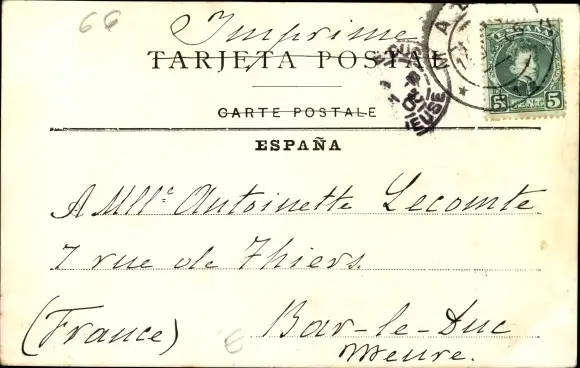 66
Imprimé
TARJETA POSTAL
CARTE POSTALE
ESPAÑA
ESPAÑA
5 CENT. 5
MEUSE
A Mlle Antoinette Lecomte
7 rue de Thiers.
(France) Bar-le-Duc
Meuse.